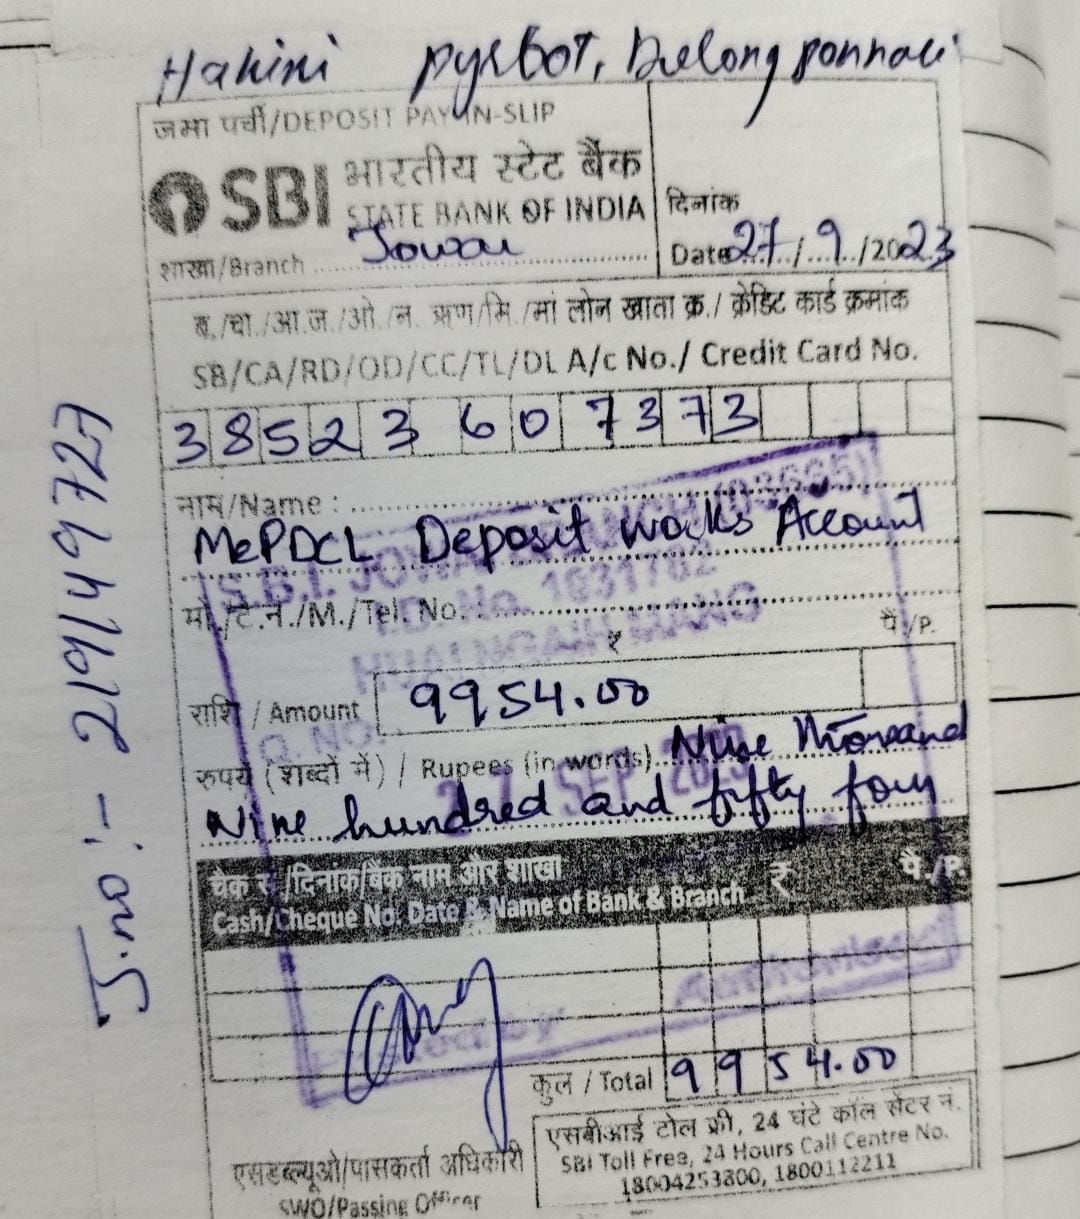 Hahini pyrbot, Dulong ponnali
जमा पर्ची/DEPOSIT PAY-IN-SLIP
SBI भारतीय स्टेट बैंक
STATE BANK OF INDIA
दिनांक
शाखा/Branch Jowai
Date 27/9/2023
ब./चा./आ.ज./ओ./न. ऋण/मि./मां लोन खाता क्र./ क्रेडिट कार्ड क्रमांक
SB/CA/RD/OD/CC/TL/DL A/c No./ Credit Card No.
38523607373
नाम/Name :
MePDCL Deposit works Account
मो./टे.नं./M./Tel. No.
₹ पै./P.
राशि / Amount 9954.00
रुपये (शब्दों में) / Rupees (in words) Nine Thousand
Nine hundred and fifty four
चेक सं./दिनांक/बैंक नाम और शाखा ₹ पै./P.
Cash/Cheque No. Date & Name of Bank & Branch
कुल / Total 9954.00
एसबीआई टोल फ्री, 24 घंटे कॉल सेंटर नं.
SBI Toll Free, 24 Hours Call Centre No.
18004253800, 1800112211
एसडब्ल्यूओ/पासकर्ता अधिकारी
SWO/Passing Officer
J.no:- 219149727
S.B.I. JOWAI
27 SEP 2023
Authorised